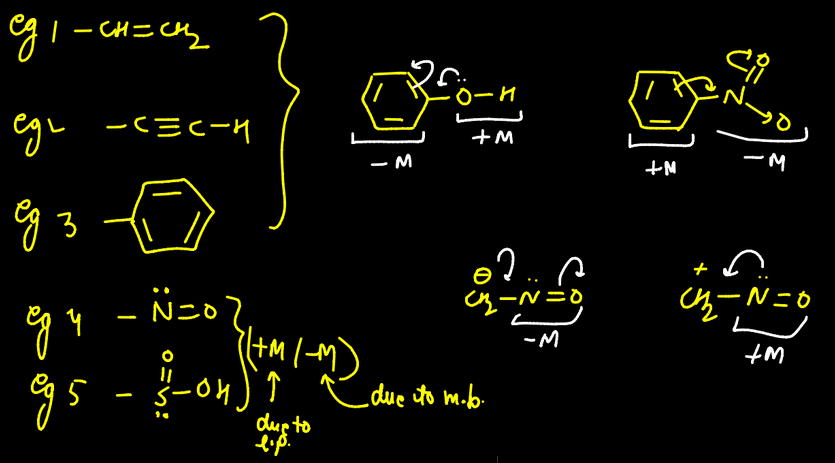 eg 1 - CH=CH2
eg 2 - C≡C-H
eg 3
eg 4 - N̈=O
eg 5 - S-OH
O
(+M/-M)
due to
l.p.
due to m.b.
Ö-H
-M
+M
N
O
O
+M
-M
⊖
CH2-N̈=O
-M
+
CH2-N̈=O
+M